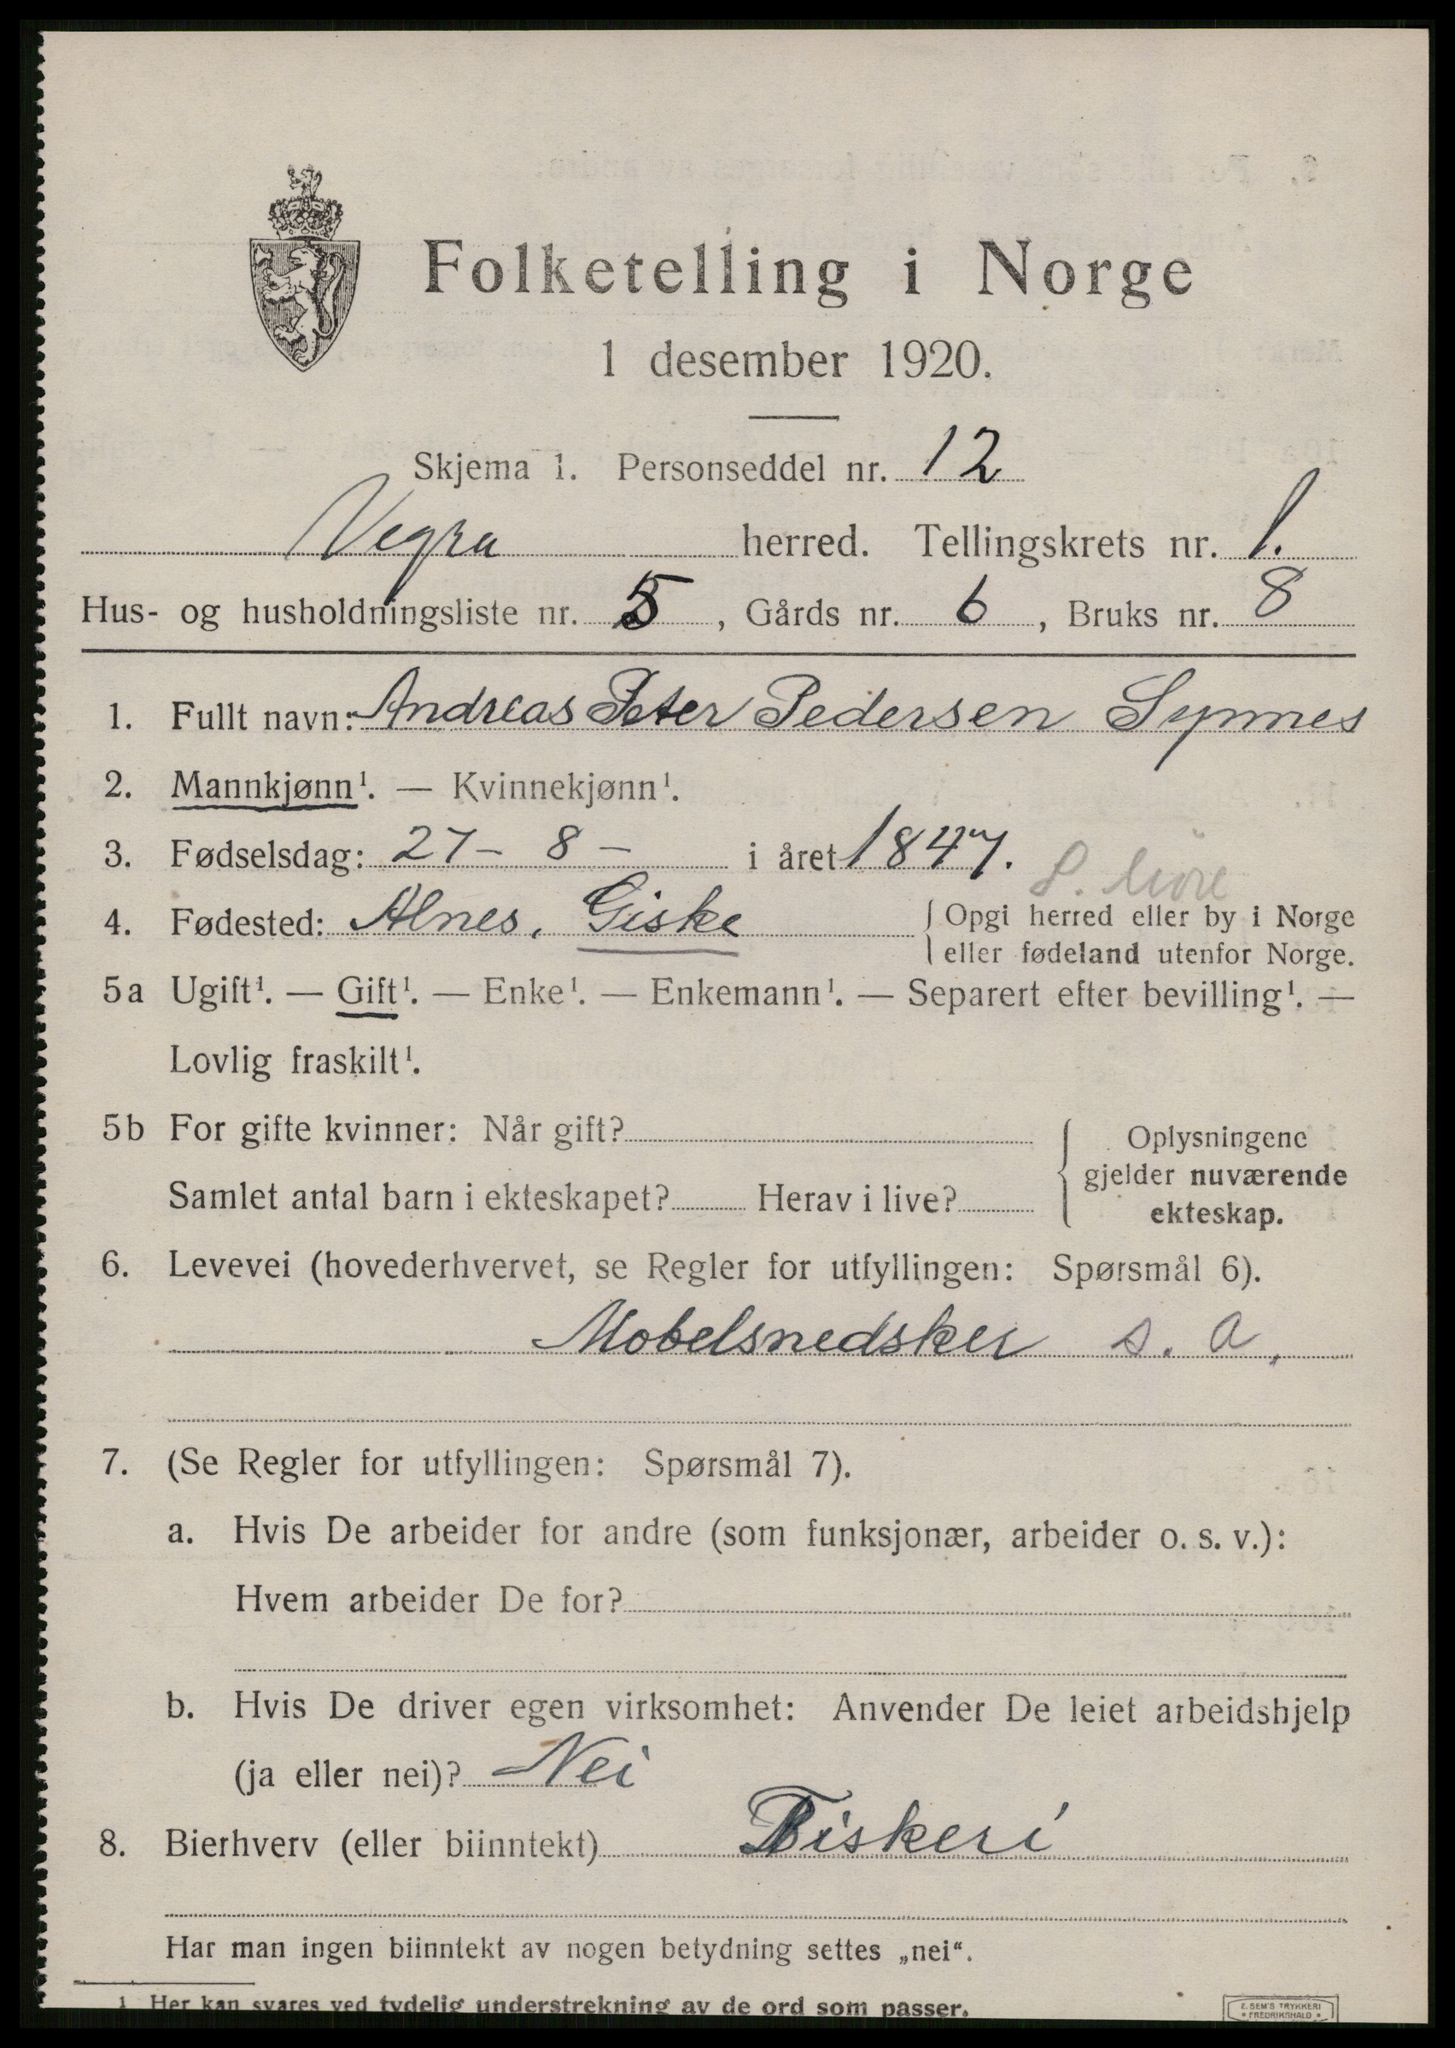 Folketelling i Norge
1 desember 1920.
Skjema 1. Personseddel nr. 12
Vegra herred. Tellingskrets nr. 1.
Hus- og husholdningsliste nr. 5, Gårds nr. 6, Bruks nr. 8
1. Fullt navn: Andreas Peter Pedersen Synnes
2. Mannkjønn¹. — Kvinnekjønn¹.
3. Fødselsdag: 27 - 8 - i året 1847.
S. Møre
4. Fødested: Alnes, Giske { Opgi herred eller by i Norge
eller fødeland utenfor Norge.
5a Ugift¹. — Gift¹. — Enke¹. — Enkemann¹. — Separert efter bevilling¹. —
Lovlig fraskilt¹.
5b For gifte kvinner: Når gift? { Oplysningene
gjelder nuværende
Samlet antal barn i ekteskapet? Herav i live?
ekteskap.
6. Levevei (hovederhvervet, se Regler for utfyllingen: Spørsmål 6).
Mobelsnedsker s. a.
7. (Se Regler for utfyllingen: Spørsmål 7).
a. Hvis De arbeider for andre (som funksjonær, arbeider o. s. v.):
Hvem arbeider De for?
b. Hvis De driver egen virksomhet: Anvender De leiet arbeidshjelp
(ja eller nei)? Nei
8. Bierhverv (eller biinntekt) Fiskeri
Har man ingen biinntekt av nogen betydning settes „nei“.
1 Her kan svares ved tydelig understrekning av de ord som passer.
E. SEM'S TRYKKERI
* FREDRIKSHALD *